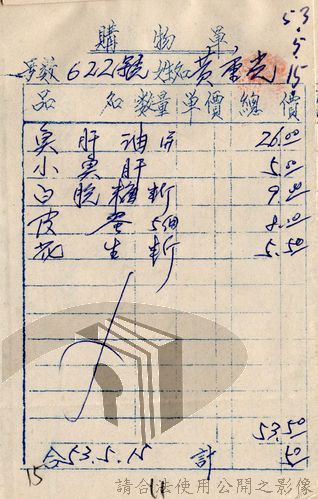 53.5.15
購物單
622號 姓名 黃
品名 數量 單價 總價
魚肝油 26.00
小魚肝 5.00
白脫糖 斤 9.00
皮蛋 5個 8.00
花生 斤 5.50
53.50
合 53.5.15 計 50
15
請合法使用公開之影像